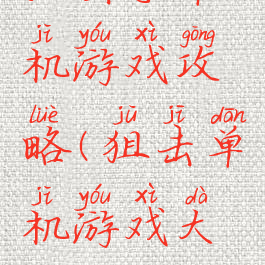 jī yóu xì gōng
机游戏攻
lüè jū jī dān
略(狙击单
jī yóu xì dà
机游戏大